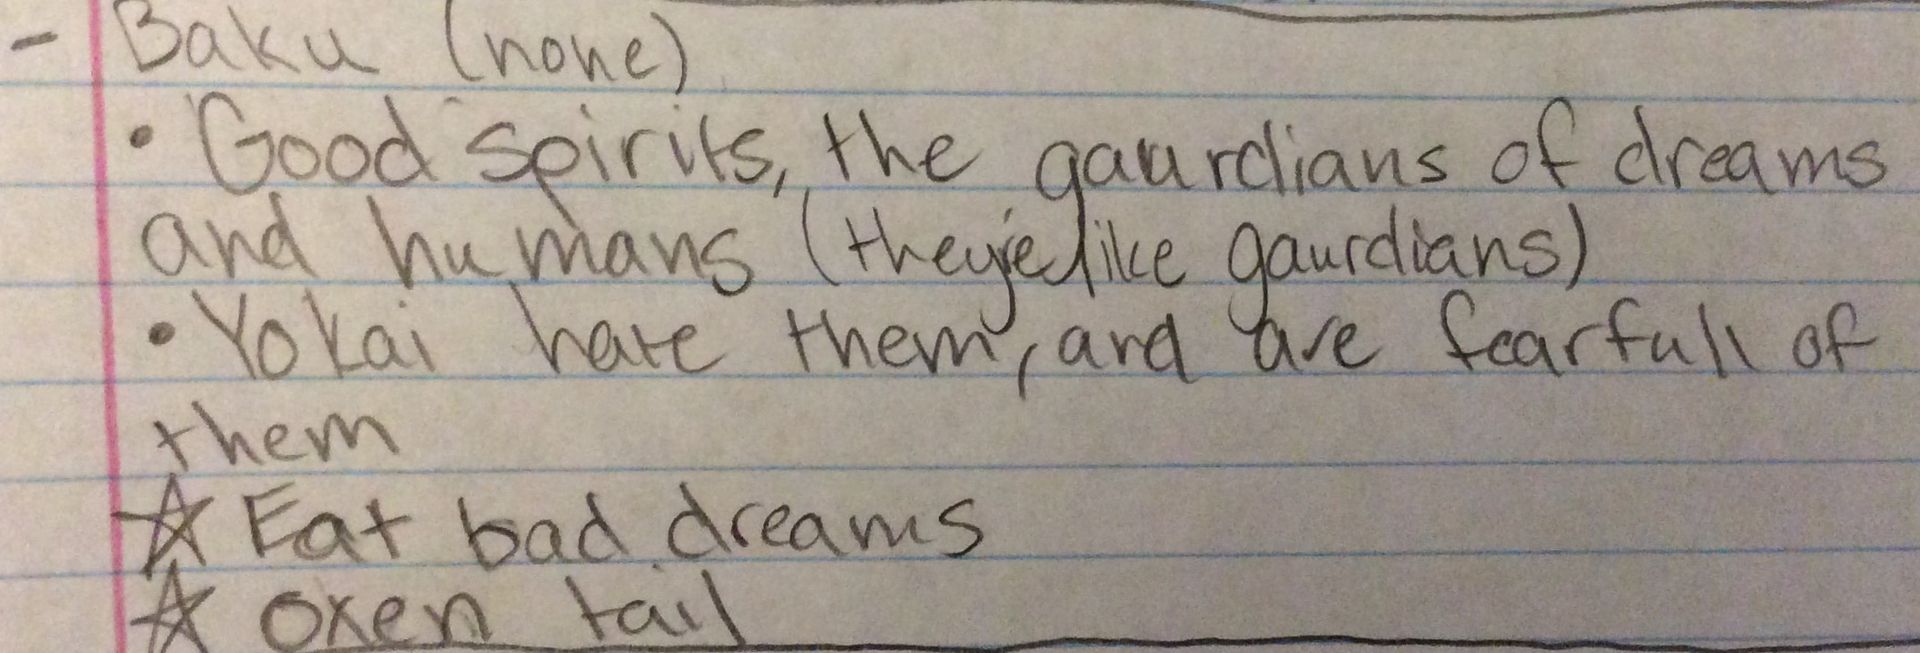 - Baku (none)
• Good spirits, the gaurdians of dreams
and humans (they're like gaurdians)
• Yokai hate them, and are fearfull of
them
☆ Eat bad dreams
☆ oxen tail